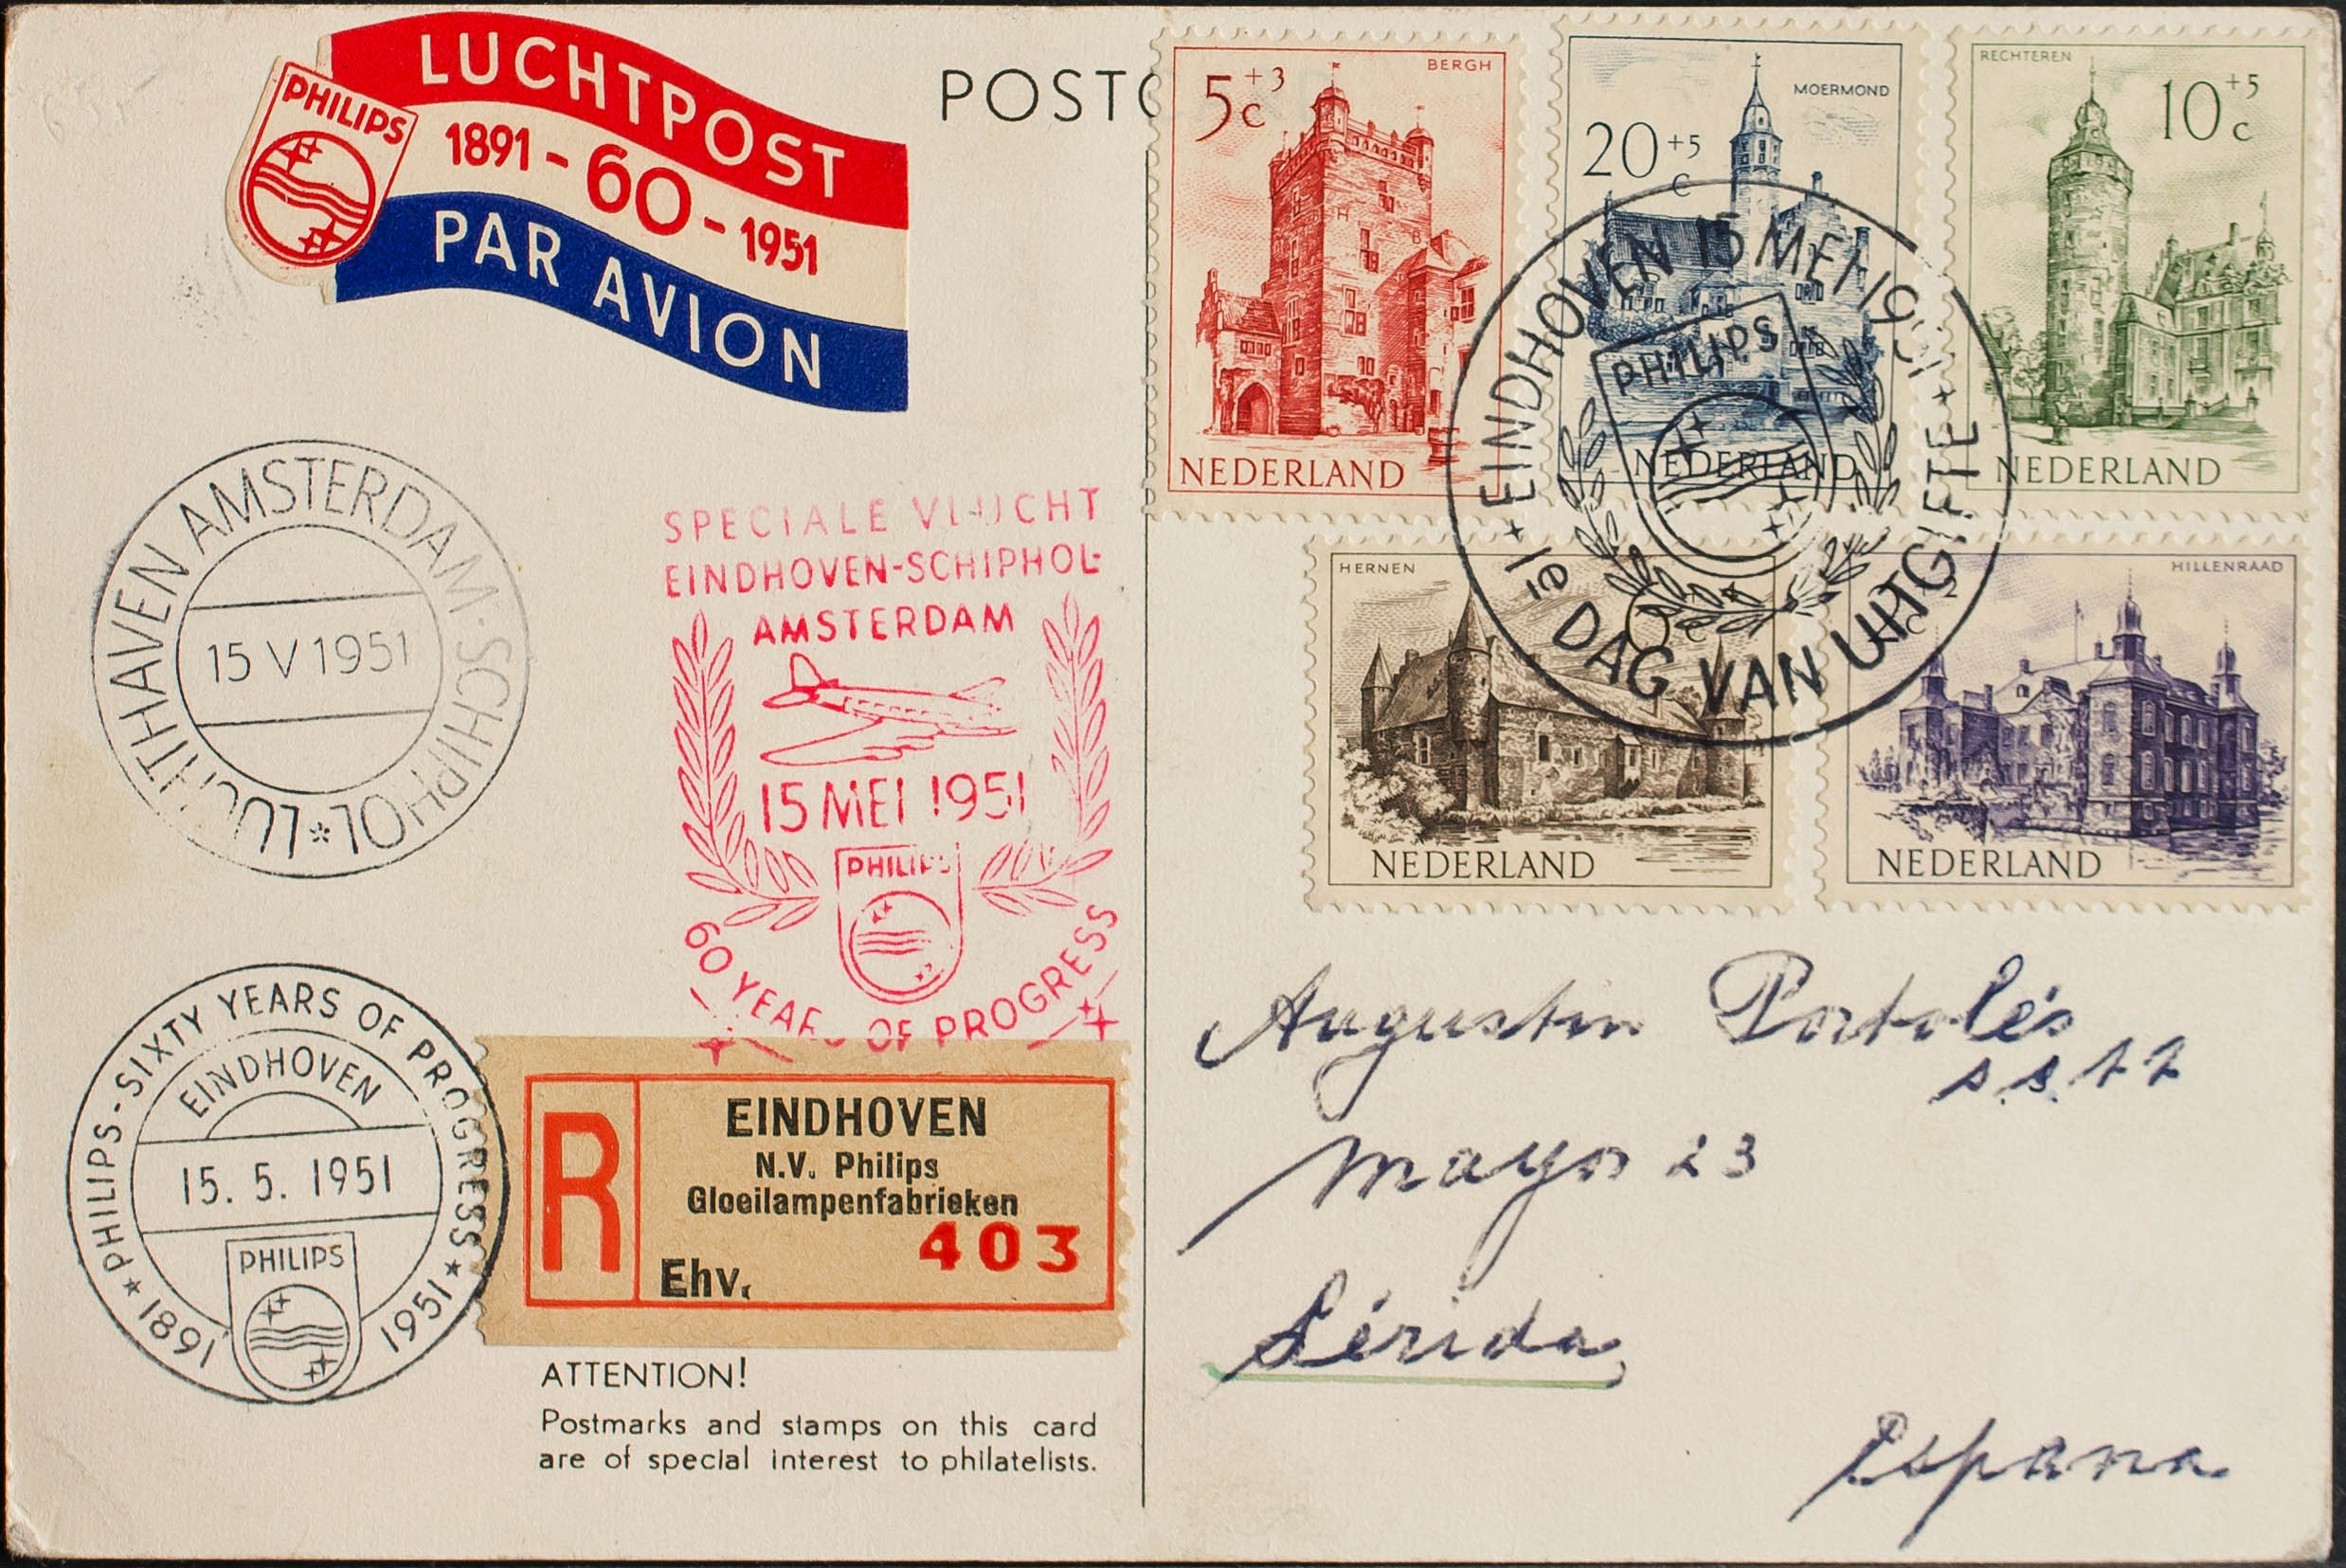 PHILIPS
LUCHTPOST
1891 - 60 - 1951
PAR AVION
POSTC
BERGH
5+3 c
NEDERLAND
MOERMOND
20+5 c
NEDERLAND
RECHTEREN
10+5 c
NEDERLAND
EINDHOVEN 15 MEI 1951
PHILIPS
1e DAG VAN UITGIFTE
HERNEN
NEDERLAND
HILLENRAAD
NEDERLAND
LUCHTHAVEN AMSTERDAM-SCHIPHOL *
15 V 1951
SPECIALE VLUCHT
EINDHOVEN-SCHIPHOL-
AMSTERDAM
15 MEI 1951
PHILIPS
60 YEARS OF PROGRESS
* PHILIPS - SIXTY YEARS OF PROGRESS *
EINDHOVEN
15. 5. 1951
PHILIPS
1891 1951
R
EINDHOVEN
N.V. Philips
Gloeilampenfabrieken
403
Ehv.
ATTENTION!
Postmarks and stamps on this card
are of special interest to philatelists.
Augustin Portolés
Mayor 23
Lérida
España